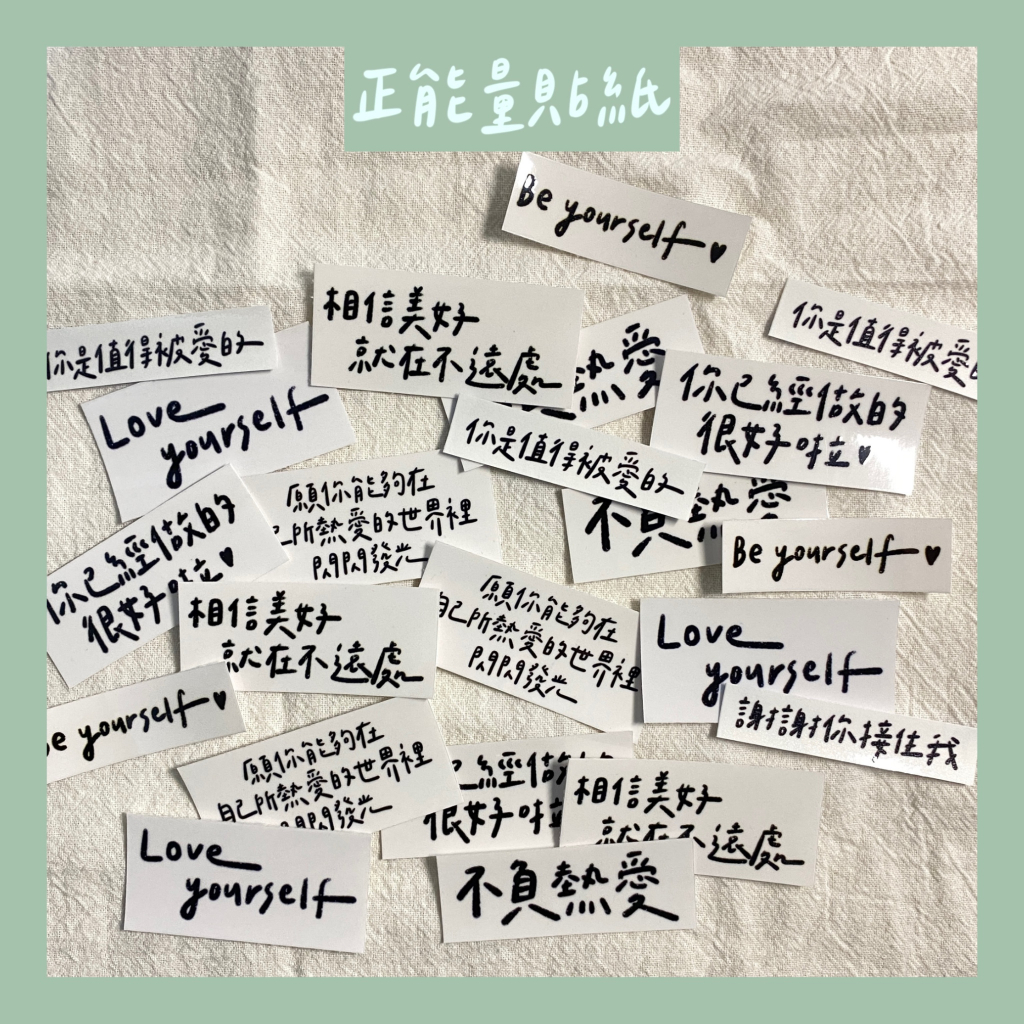 正能量貼紙
Be yourself♥
你是值得被愛的
相信美好
就在不遠處
熱愛
你是值得被愛
你已經做的
很好啦♥
Love
yourself
你是值得被愛的
願你能夠在
己所熱愛的世界裡
閃閃發光
不負熱愛
你已經做的
很好啦♥
Be yourself♥
相信美好
就在不遠處
願你能夠在
自己所熱愛的世界裡
閃閃發光
Love
yourself
Be yourself♥
謝謝你接住我
願你能夠在
自己所熱愛的世界裡
閃閃發光
已經做的
很好啦
相信美好
就在不遠處
Love
yourself
不負熱愛